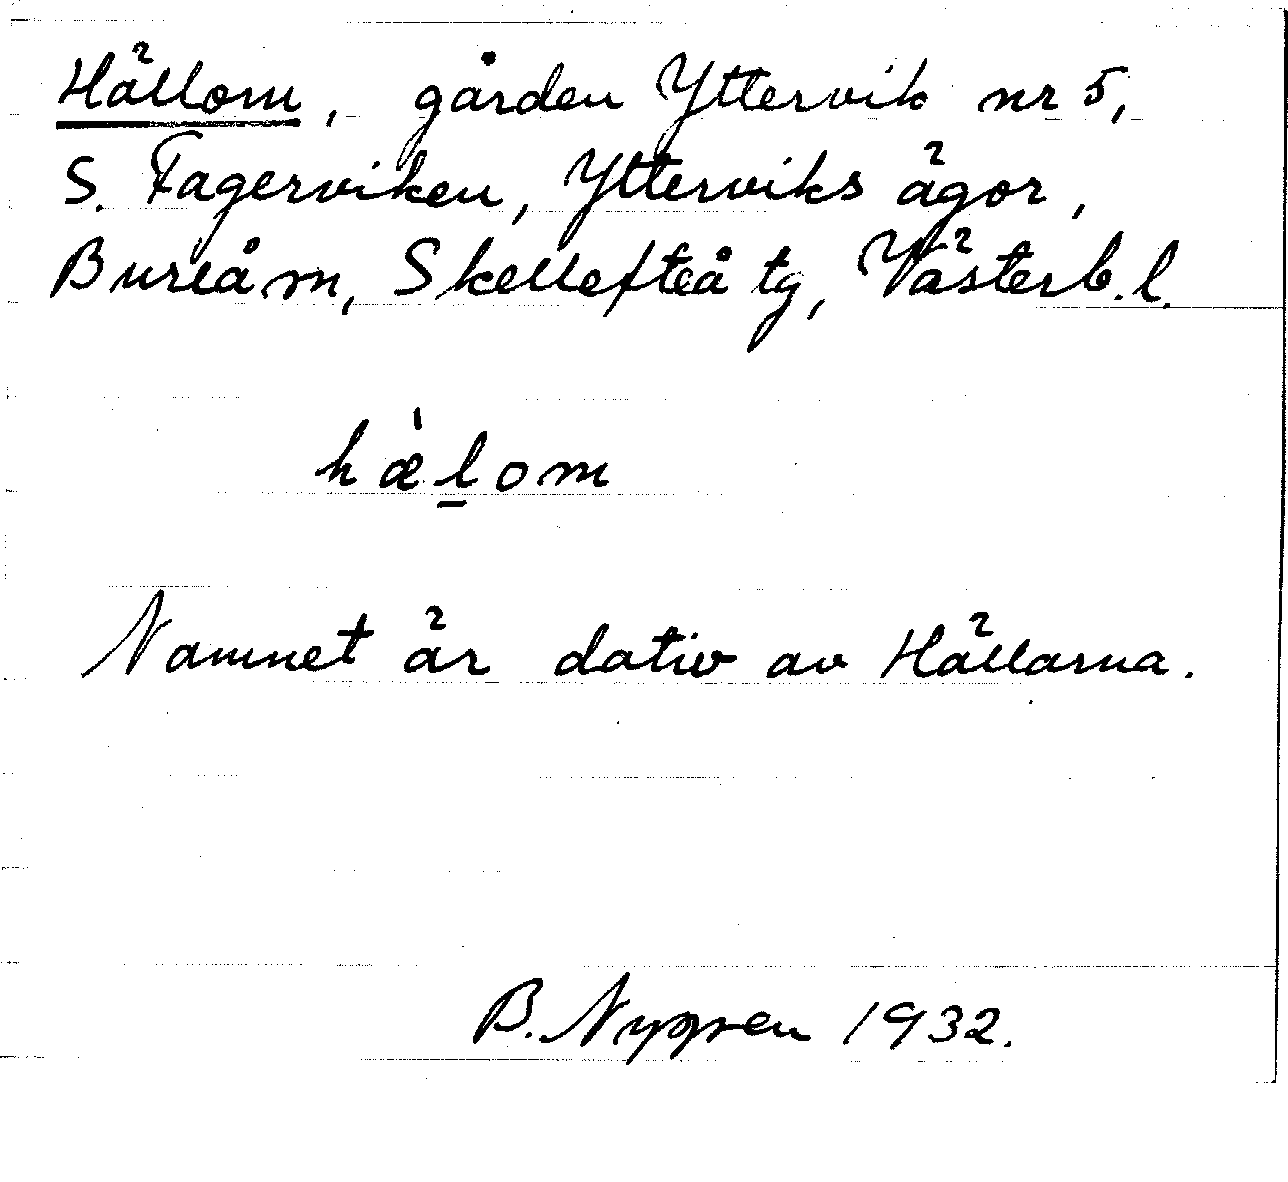 Hällom, gården Yttervik nr 5,
S. Fagerviken, Ytterviks ägor,
Bureå m, Skellefteå tg, Västerb. l.
hæ̀l̲om
Namnet är dativ av Hällarna.
B. Nygren 1932.